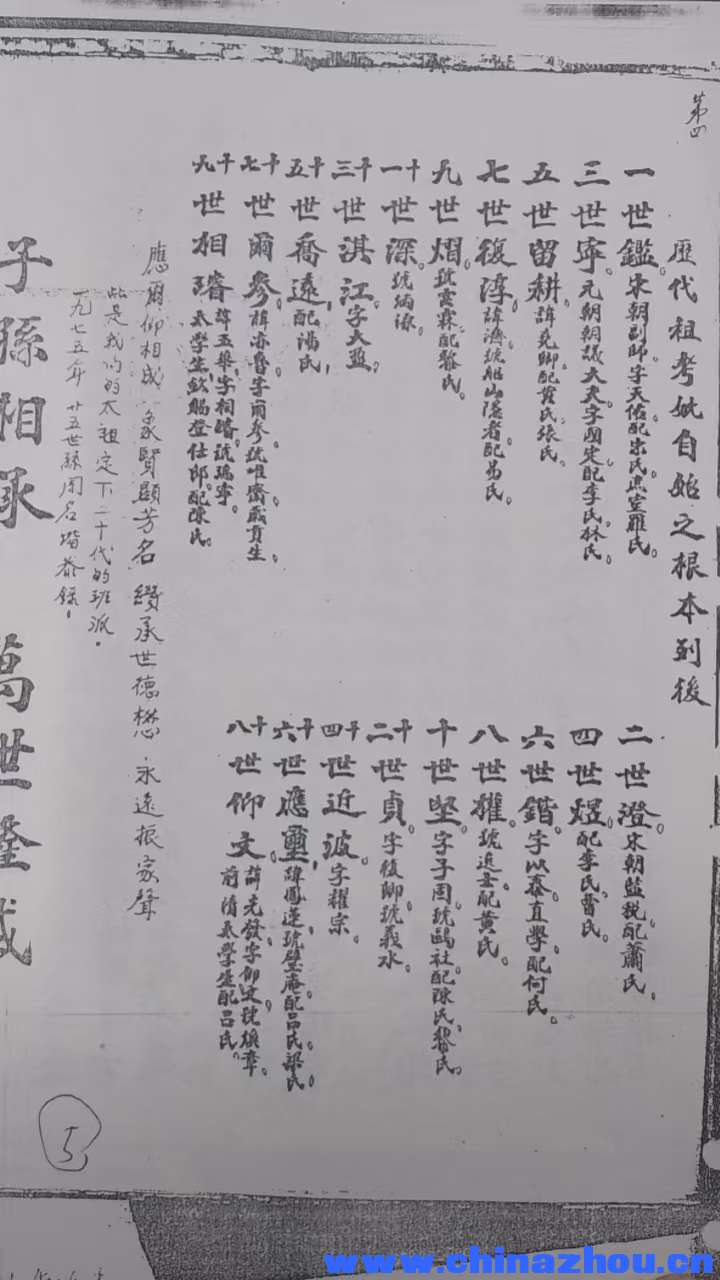 第四
歷代祖考妣自始之根本列後
一世鑑。宋朝副師。字天佑。配宋氏。羅氏。
二世澄。宋朝監稅。配蕭氏。
三世寧。元朝朝議大夫。字國定。配李氏。林氏。
四世煜。配李氏。曹氏。
五世留耕。諱堯卿。配黃氏。張氏。
六世鍇。字以泰。直學。配何氏。
七世復淳。諱濟。號船山隱者。配易氏。
八世權。號近
配黃氏。
九世熠。號雲霖。配黎氏。
十世堅。字子固。號鷗社。配陳氏。黎氏。
十一世深。號
十二世貞。字復卿。號義水。
十三世淇江。字大
十四世近波。字耀宗。
十五世喬遠。配馮氏。
十六世應璽。諱鳳蓮。號璧庵。配呂氏。梁氏。
十七世爾參。諱亦魯。字爾參。號唯齋。歲貢生。
十八世仰文。諱光發。字仰文。號煥章。
前清太學生。配呂氏。
十九世相璿。諱五舉。字相璿。號瑞寧。
太學生。欽賜登仕郎。配陳氏。
應爾仰相成 象賢顯芳名 纘承世德懋 永遠振家聲
此是我們的太祖定下二十代的班派。
一九七五年 廿五世孫周名增恭錄。
子孫相承 萬世隆盛
5
www.chinazhou.cn